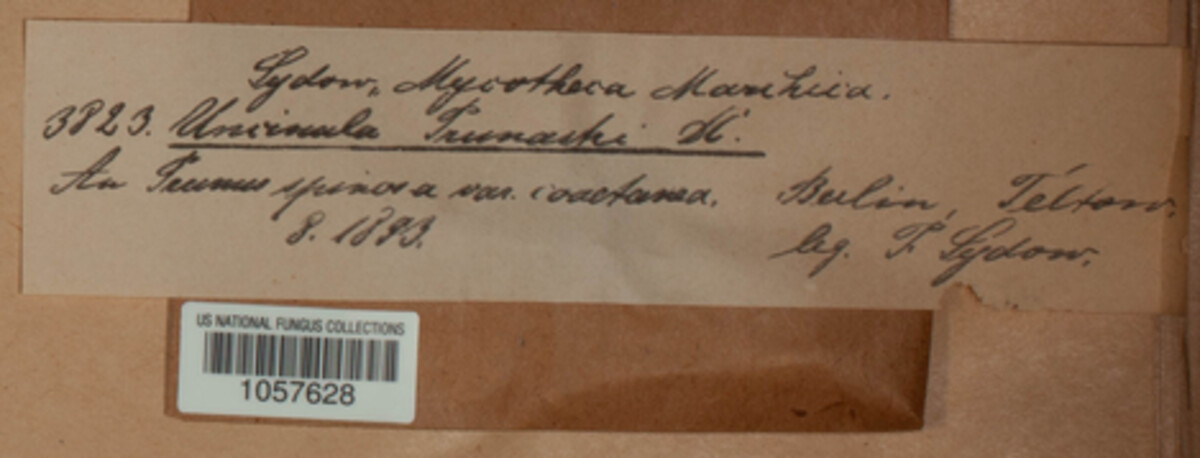 Sydow, Mycotheca Marchica.
3823. Uncinula Prunastri DC.
An Prunus spinosa var. coaetanea. Berlin, Teltow.
8. 1893. leg. P. Sydow.
US NATIONAL FUNGUS COLLECTIONS
1057628